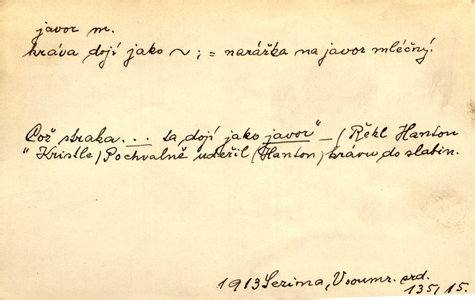 javor m.
kráva dojí jako ~ ; = narážka na javor mléčný.
Což straka . . . ta dojí jako javor" – (Řekl Hanton
"Kristle) Pochvalně udeřil (Hanton) krávu do slabin.
1913 Serima, Vsoumr. srd.
135/15.